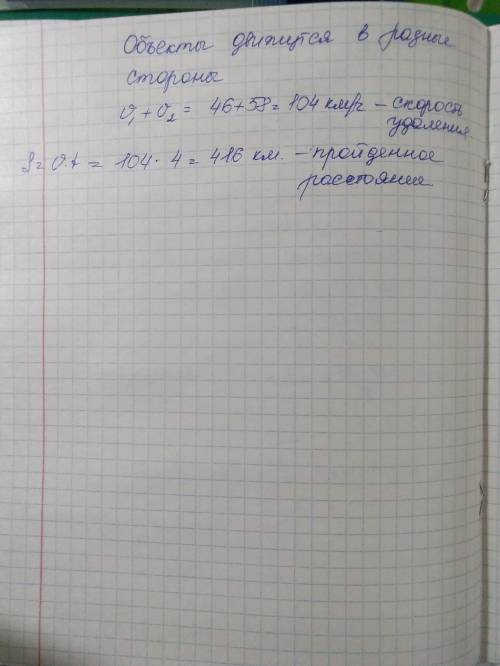 Объекты движутся в разные
стороны
υ₁ + υ₂ = 46+58 = 104 км/г – скорость
удаления
S = υ.t = 104 · 4 = 416 км. – пройденное
расстояние